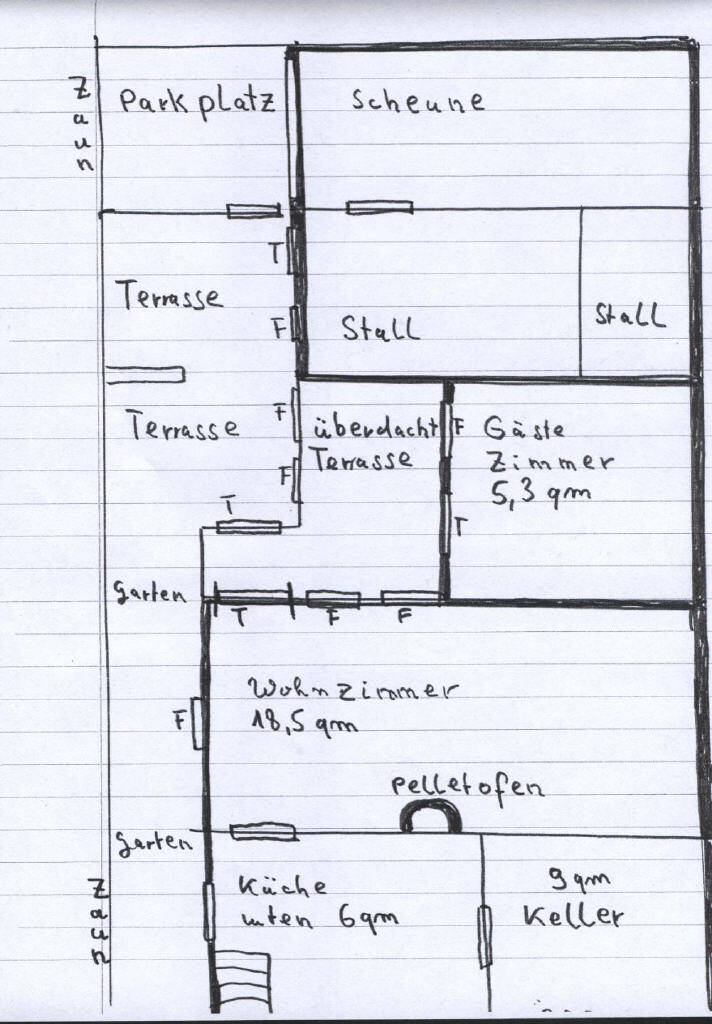 Zaun
Parkplatz
Scheune
T
Terrasse
F
Stall
Stall
F
Terrasse
F
überdacht
Terrasse
F
Gäste
Zimmer
5,3 qm
T
T
Garten
T
F
F
Wohnzimmer
18,5 qm
F
Pelletofen
Garten
Zaun
Küche
unten 6qm
9qm
Keller